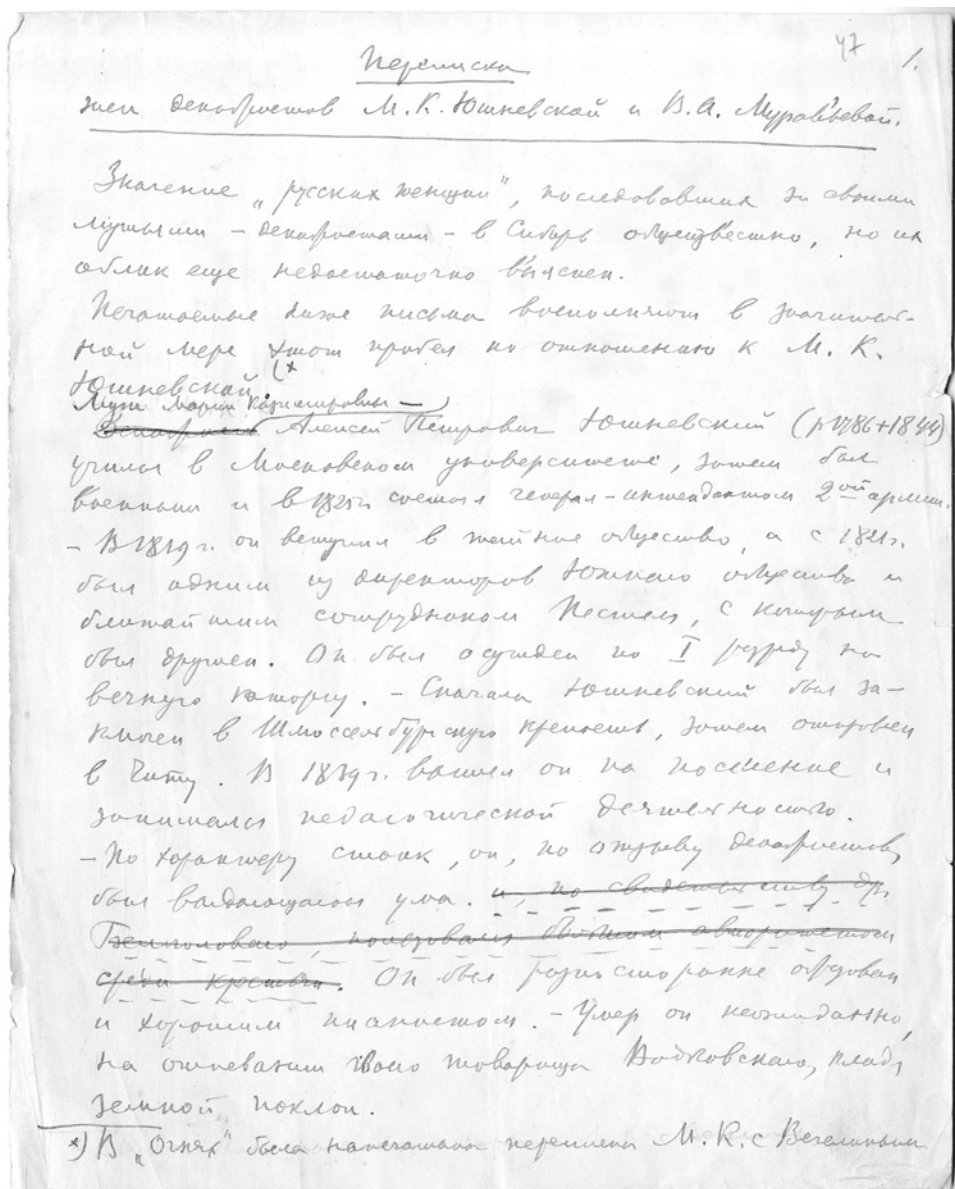 47 1.
Переписка
жен декабристов М. К. Юшневской и В. А. Муравьевой.
Значение „русских женщин", последовавших за своими
мужьями – декабристами – в Сибирь общеизвестно, но их
облик еще недостаточно выяснен.
Печатаемые ниже письма восполняют в значитель-
ной мере этот пробел по отношению к М. К.
Юшневской (x
Муж Марии Казимировны –
Декабрист Алексей Петрович Юшневский (р 1786 + 1844)
учился в Московском университете, затем был
военным и в 1825 г. состоял генерал-интендантом 2ой армии.
– В 1819 г. он вступил в тайное общество, а с 1821 г.
был одним из директоров Южного общества и
ближайшим сотрудником Пестеля, с которым
был дружен. Он был осужден по I разряду на
вечную каторгу. – Сначала Юшневский был за-
ключен в Шлиссельбургскую крепость, затем отправлен
в Читу. В 1839 г. вышел он на поселение и
занимался педагогической деятельностью.
– По характеру стоик, он, по отзыву декабристов,
был выдающегося ума. и, по свидетельству др.
Белоголового, пользовался большим авторитетом
среди крестьян. Он был разносторонне образован
и хорошим пианистом. – Умер он неожиданно,
на отпевании своего товарища Вадковского, кладя
земной поклон.
x) В „Огнях" была напечатана переписка М. К. с Вегелиным